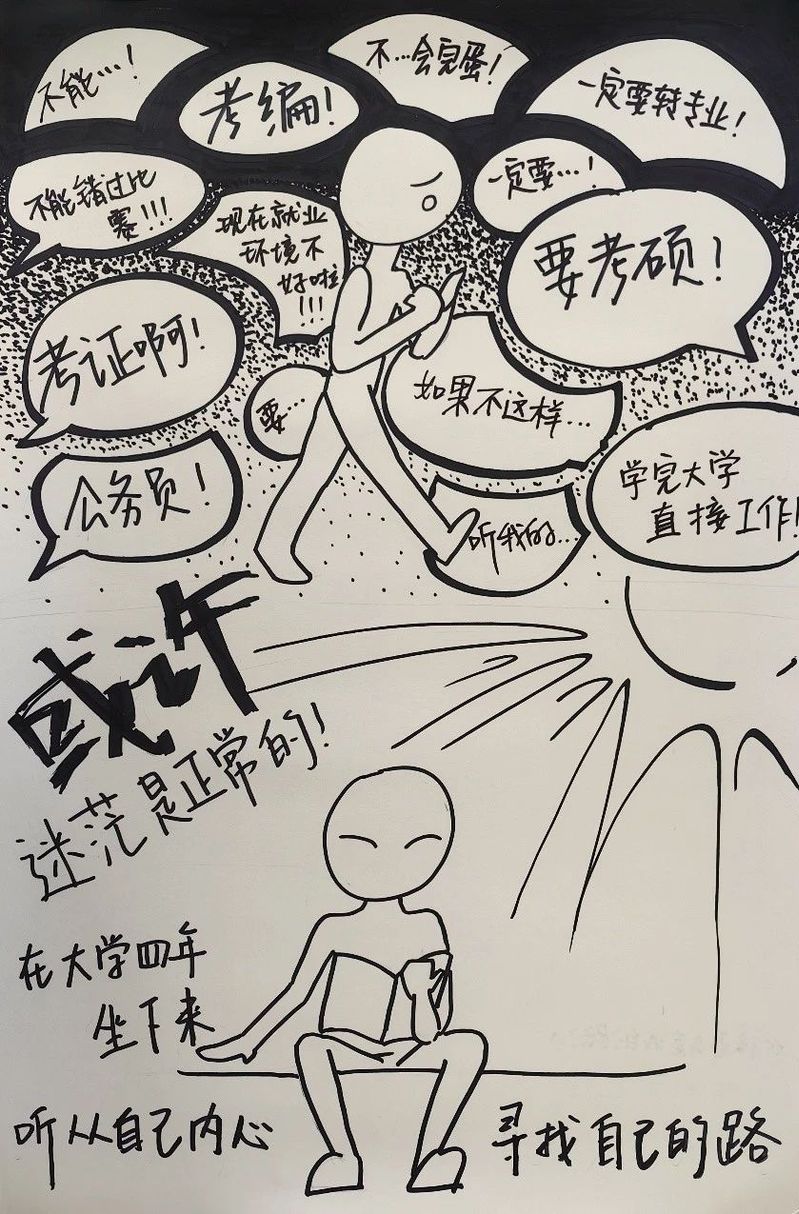 不能…！
考编！
不…会完蛋！
一定要转专业！
不能错过比
赛！！！
现在就业
环境不
好啦
！！！
一定要…！
要考硕！
考证啊！
要…
如果不这样…
公务员！
听我的…
学完大学
直接工作！
或许
迷茫是正常的！
在大学四年
坐下来
听从自己内心
寻找自己的路